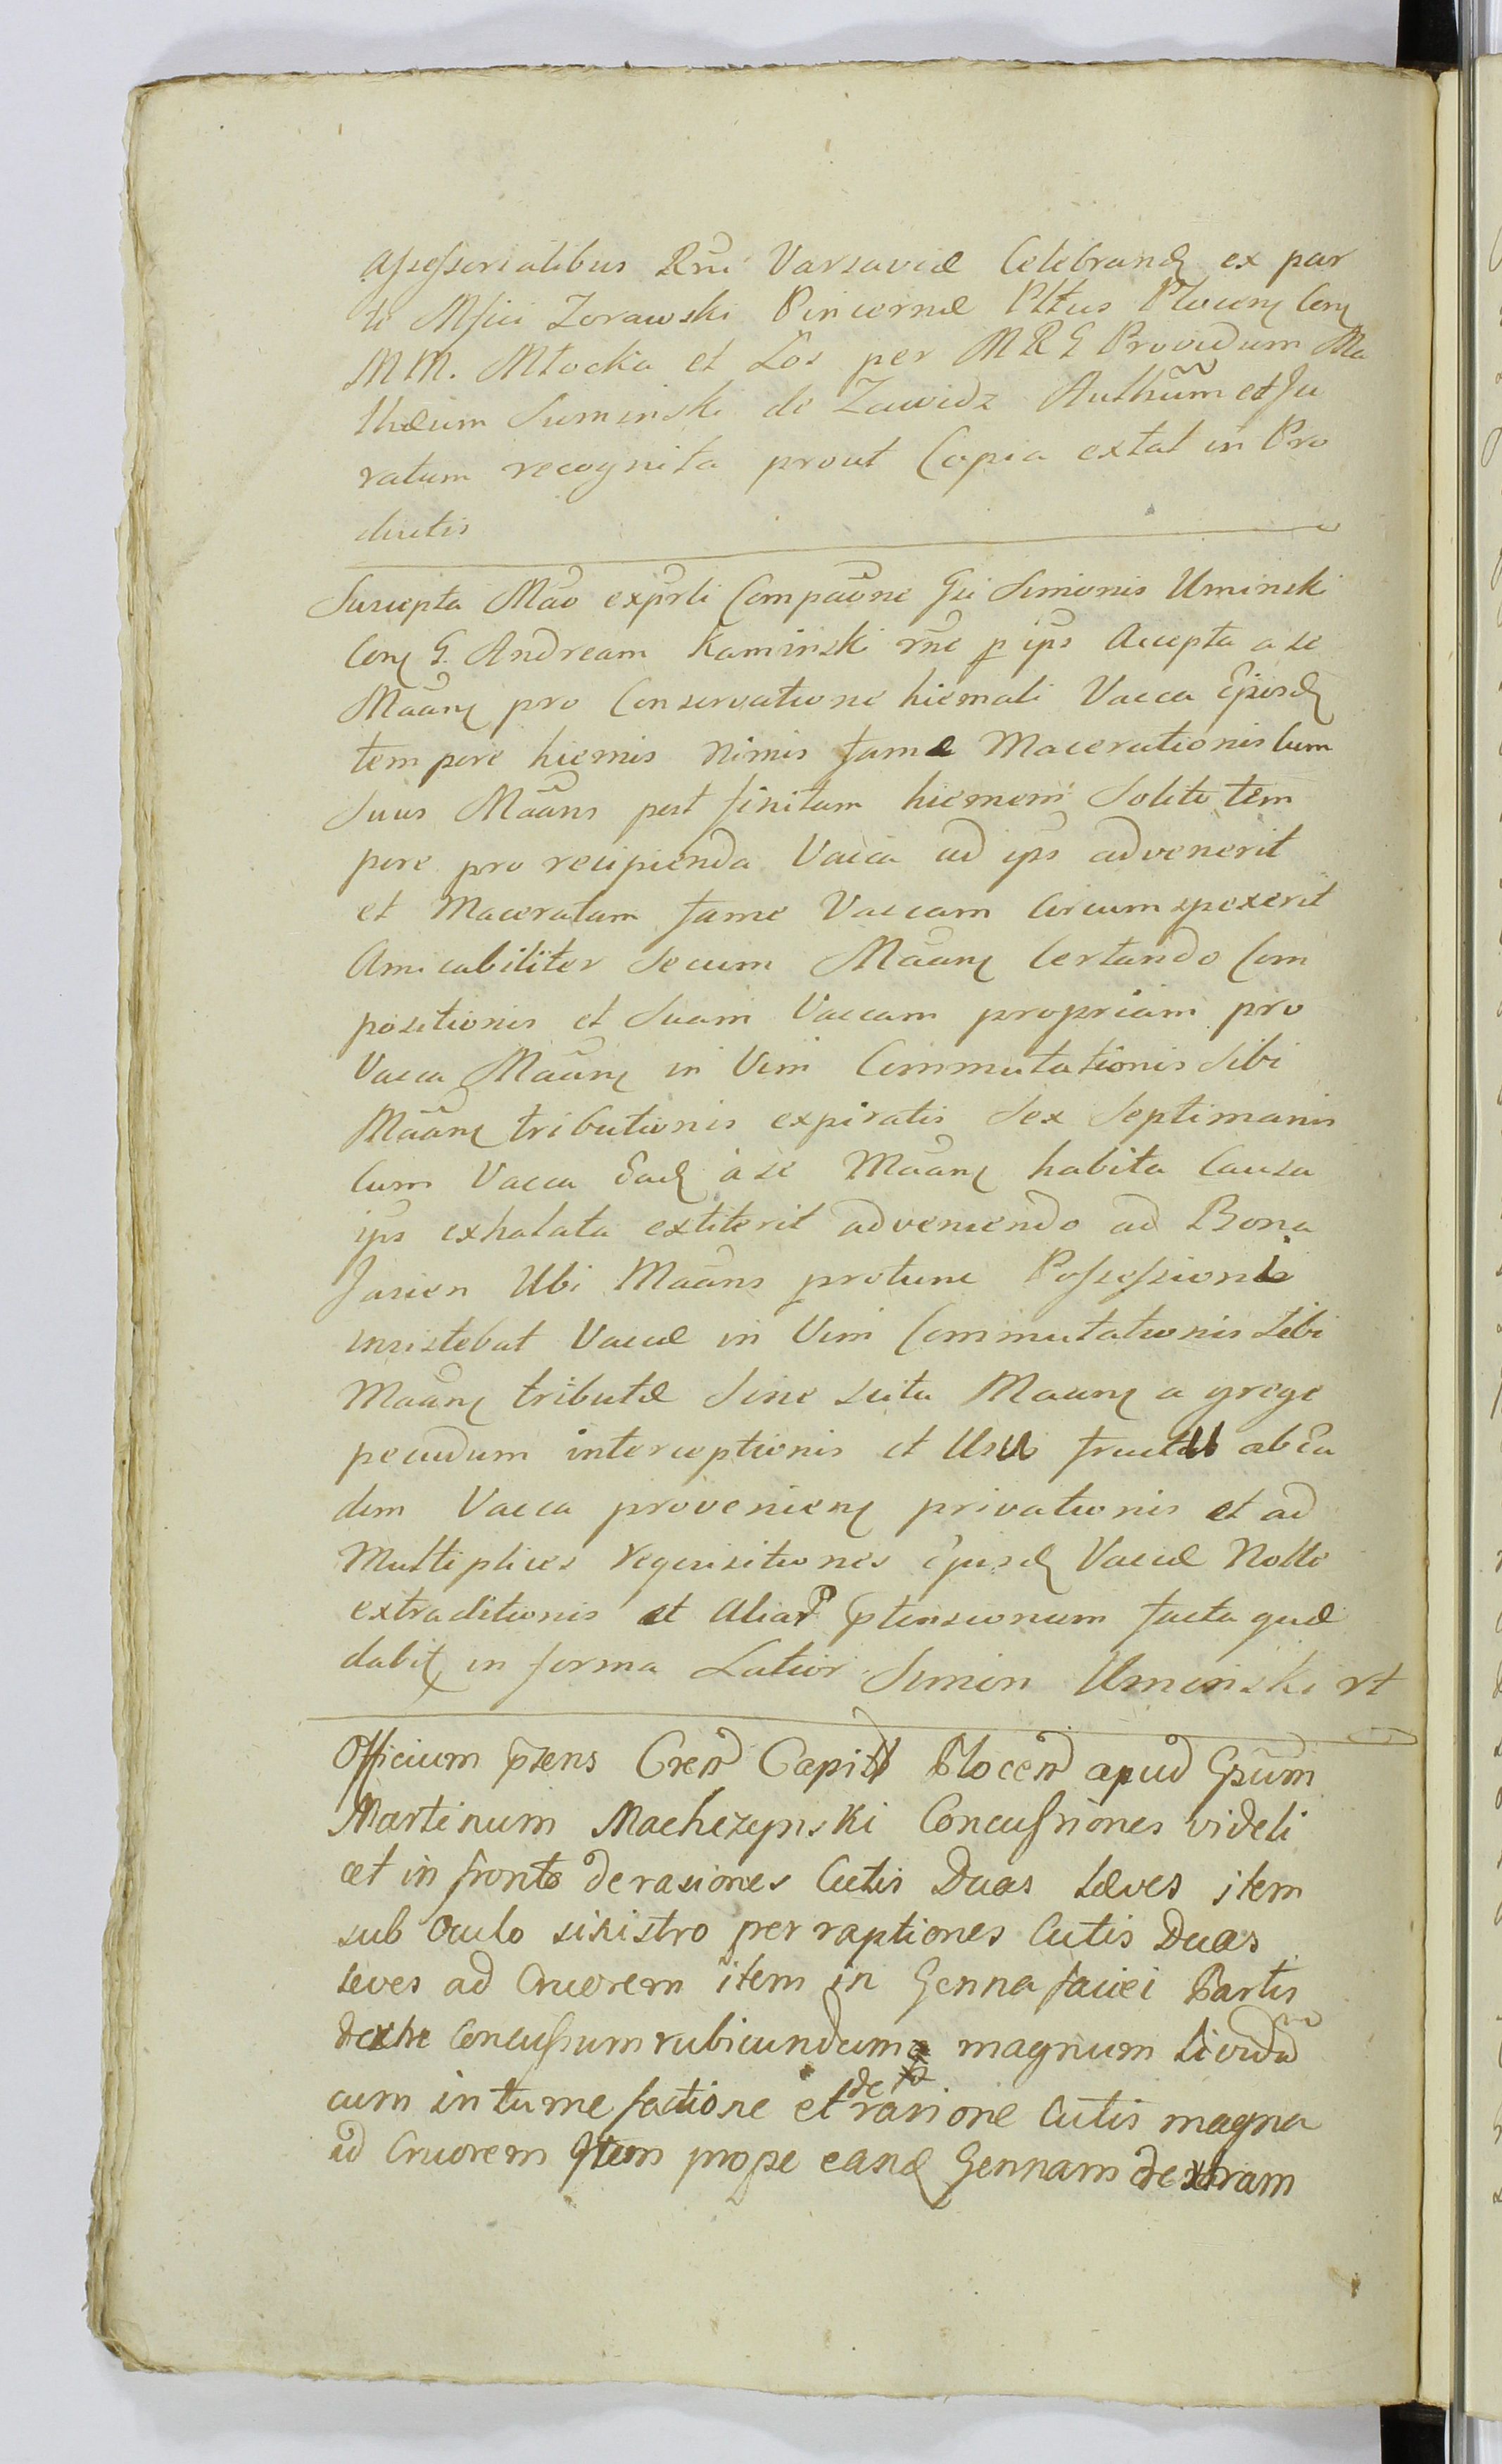 assessorialibus Rni Varsaviæ Celebrand ex par
te Mfici Zorawski Pincernæ Pltus Plocen Con
M M. Mtocka et Los per M R G Providum Ma
thæum Suminski de Zawidz Authum et Ju
ratum recognita prout Copia extat in Pro
ductis
Suscepta Mao exprti Compaone Gsi Simonis Uminski
Con G. Andream Kaminski rne p ips Accepta a se
Maan pro Conservatione hiemali Vacca Ejusd
tempore hiemis nimis famæ Macerationis Cum
Suus Maans post finitam hiemem Solito tem
pore pro recipienda Vacca ad ips advenerit
et Maceratam fame Vaccam Circumspexerit
Amicabiliter Secum Maan Certando Com
positionis et Suam Vaccam propriam pro
Vacca Maan in Vim Commutationis Sibi
Maan tributionis expiratis Sex Septimanis
Cum Vacca Ead a se Maan habita Causa
ips exhalata extiterit adveniendo ad Bona
Jasien Ubi Maans protunc Possessioni
insistebat Vaccæ in Vim Commutationis Sibi
Maan tributæ Sine scitu Maan a grege
pecudum interceptionis et Usu fructu ab Ea
dem Vacca provenien privationis et ad
Multiplices requisitiones Ejusd Vaccæ Nolle
extraditionis et Aliar ptensionum facta quæ
dabit in forma Latior Simon Uminski rt
Officium pzens Cren Capitl Plocen apud Gsum
Martinum Machczynski Concussiones videli
cet in fronte derasiones Cutis Duas Læves item
sub Oculo sinistro perraptiones Cutis Duas
leves ad Cruorem item in Genna faciei Partis
dextre Concussum rubicundum magnum Lividu
cum intumefactione et de rasione Cutis magna
ad Cruorem Item prope eand Gennam dextram